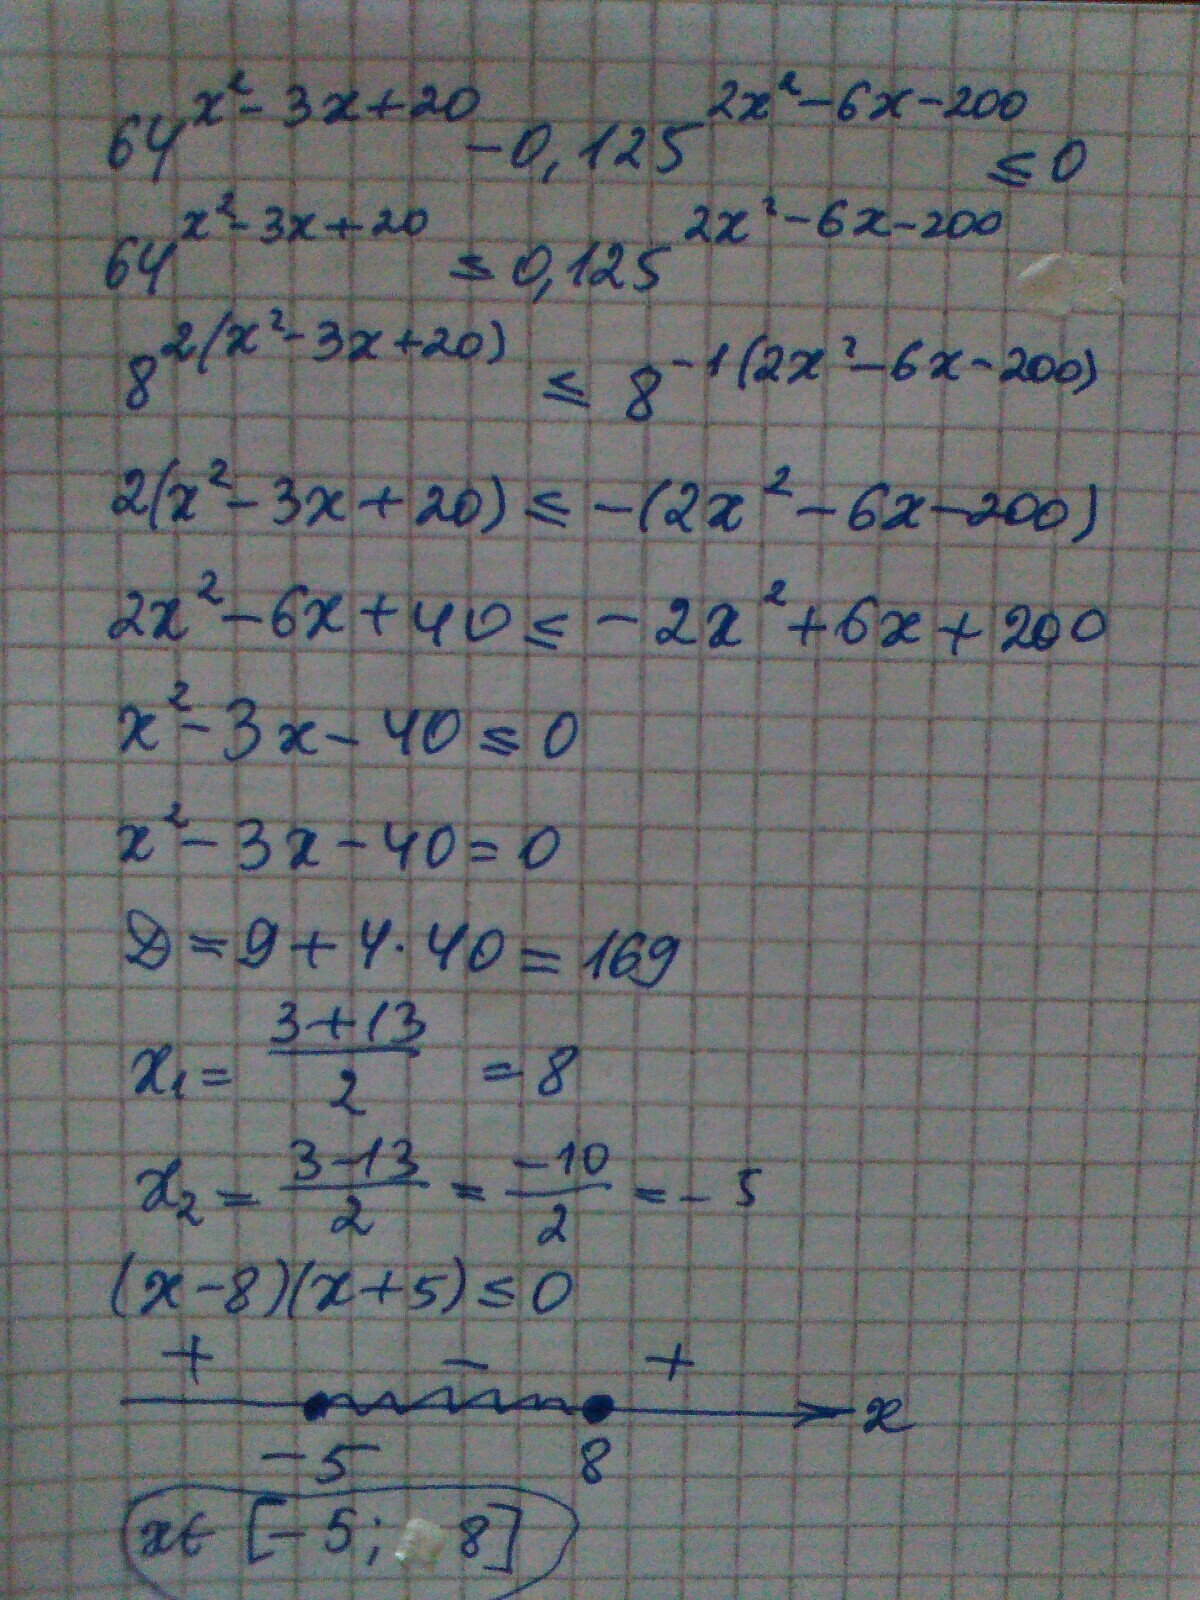 64^(x²-3x+20) - 0,125^(2x²-6x-200) ≤ 0
64^(x²-3x+20) ≤ 0,125^(2x²-6x-200)
8^(2(x²-3x+20)) ≤ 8^(-1(2x²-6x-200))
2(x²-3x+20) ≤ -(2x²-6x-200)
2x²-6x+40 ≤ -2x²+6x+200
x²-3x-40 ≤ 0
x²-3x-40=0
D=9+4·40=169
x₁ = (3+13)/2 = 8
x₂ = (3-13)/2 = (-10)/2 = -5
(x-8)(x+5) ≤ 0
+ - +
x
-5 8
x∈[-5; 8]